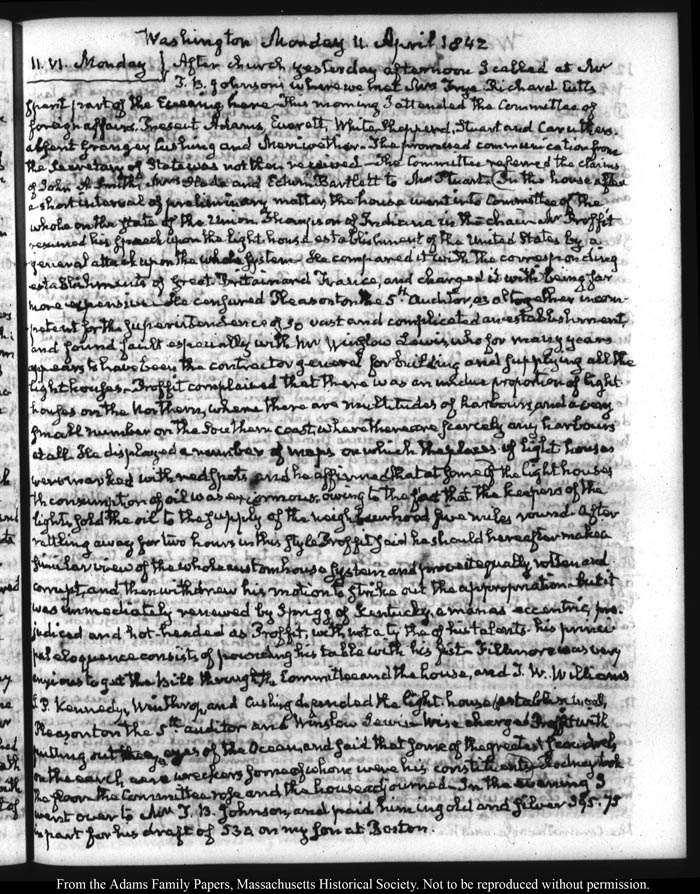 Washington Monday 11. April 1842
11. VI. Monday } After church yesterday afternoon I called at Mr
T. B. Johnson's where we met Mrs Frye. Richard Cutts
spent part of the Evening here. This morning I attended the Committee of
foreign affairs. Present Adams, Everett, White, Shepperd, Stuart and Caruthers.
absent Granger Cushing and Meriwether. The promised communication from
the Secretary of State was not then received. The Committee referred the claims
of John A. Smith, Mrs Slade and Edwin Bartlett to Mr Stuart. In the house after
a short interval of preliminary matter, the house went into Committee of the
whole on the state of the Union Thompson of Indiana in the chair. Mr Proffit
resumed his speech upon the light house establishment of the United States by a
general attack upon the whole system. He compared it with the corresponding
establishments of Great Britain and France, and charged it with being far
more expensive. He censured Pleasonton the 5th Auditor, as altogether incom-
petent for the superintendence of so vast and complicated an establishment,
and found fault especially with Mr Winslow Lewis, who for many years
appears to have been the contractor general for building and supplying all the
light houses. Proffit complained that there was an undue proportion of light
houses on the Northern, where there are multitudes of harbours, and a very
small number on the Southern coast, where there are scarcely any harbours
at all. He displayed a number of maps on which the places of light houses
were marked with red spots, and he affirmed that at some of the light houses
the consumption of oil was enormous, owing to the fact that the keepers of the
lights sold the oil to the supply of the neighbourhood five miles round. After
rattling away for two hours in this style Proffit said he should hereafter make a
similar view of the whole custom house system and prove it equally rotten and
corrupt, and then withdrew his motion to strike out the appropriation. But it
was immediately renewed by Sprigg of Kentucky, a man as eccentric, pre-
judiced and hot-headed as Proffit, with not a tythe of his talents. his princi
pal eloquence consists of pounding his table with his fist. Fillmore was very
anxious to get the bill through the Committee and the house, and J. W. Williams
J. P. Kennedy, Winthrop, and Cushing defended the light-house establishment,
Pleasonton the 5th auditor and Winslow Lewis. Wise charged Proffit with
pulling out the eyes of the Ocean, and said that some of the greatest scoundrels
on the earth, were wreckers some of whom were his constituents. Rodney took
the floor the Committee rose and the house adjourned. In the evening I
went over to Mr T. B. Johnson, and paid him in gold and silver 395.75
in part for his draft of 534 on my son at Boston.
From the Adams Family Papers, Massachusetts Historical Society. Not to be reproduced without permission.